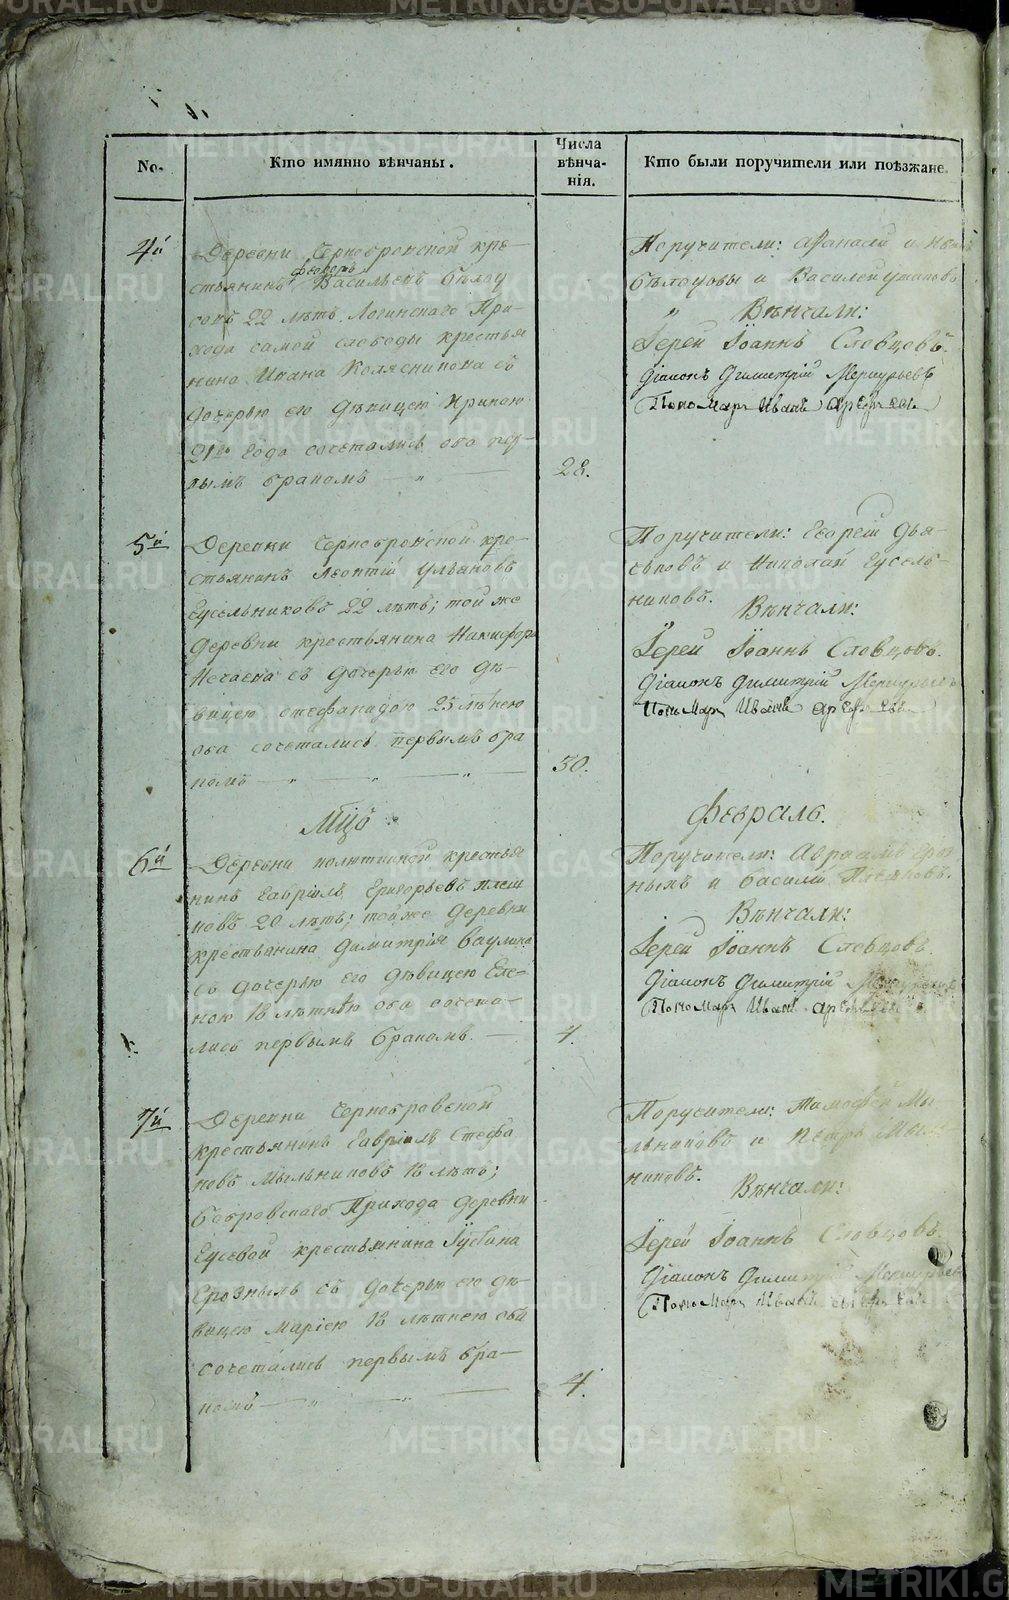 No.
Кто имянно вѣнчаны.
Числа
вѣнча-
нія.
Кто были поручители или поѣзжане.
4й
Деревни Чернобровской кре-
стьянинъ Ѳедотъ Васильевъ Бѣлоу
совъ 22 лѣтъ. Логинскаго При-
хода самой слободы крестья
нина Ивана Колясникова съ
дочерью его дѣвицею Ириною
21го года сочетались оба пер-
вымъ бракомъ — „ —
28.
Поручители: Афанасій и
Бѣлоусовы и Василей
„ Вѣнчали:
Іерей Іоаннъ Словцовъ.
Діаконъ Димитрій Меркурьевъ
Пономарь Иванъ
5й
Деревни Чернобровской кре-
стьянинъ Леонтій Ульяновъ
Гусельниковъ 22 лѣтъ; той же
деревни крестьянина Никифора
Нечаева съ дочерью его дѣ-
вицею Стефанидою 25 лѣтнею
оба сочетались первымъ бра
комъ — „ — „ — „ —
30.
Поручители: Егорей Дья-
чковъ и Николай Гусель-
никовъ.
Вѣнчали:
Іерей Іоаннъ Словцовъ.
Діаконъ Димитрій Меркурьевъ
Пономарь Иванъ
Мцъ
Февраль.
6й
Деревни крестья
нинъ Гавріилъ Григорьевъ
20 лѣтъ; тойже деревни
крестьянина Димитрія Ваулина
съ дочерью его дѣвицею Еле-
ною 18 лѣтнею оба сочета-
лись первымъ бракомъ. —
4.
Поручители: Авраамъ
и Василій
Вѣнчали:
Іерей Іоаннъ Словцовъ.
Діаконъ Димитрій Меркурьевъ
Пономарь Иванъ
7й
Деревни Чернобровской
крестьянинъ Гавріилъ Стефа
новъ Мыльниковъ 18 лѣтъ;
Бобровскаго Прихода деревни
Гусевой крестьянина Іустина
съ дочерью его дѣ-
вицею Маріею 18 лѣтнею оба
сочетались первымъ бра-
комъ — „ — „ —
4.
Поручители: Тимофей Мы-
льниковъ и Петръ Мыль
никовъ.
Вѣнчали:
Іерей Іоаннъ Словцовъ.
Діаконъ Димитрій Меркурьевъ
Пономарь Иванъ
METRIKI.GASO-URAL.RU